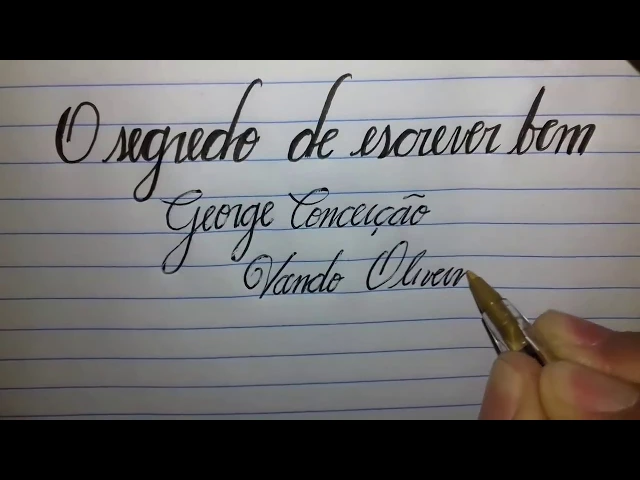 O segredo de escrever bem
George Conceição
Vando Oliveir